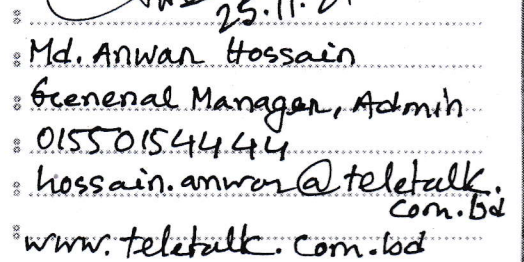 25.11.21
Md. Anwar Hossain
General Manager, Admin
01550154444
hossain.anwar@teletalk.
com.bd
www.teletalk.com.bd